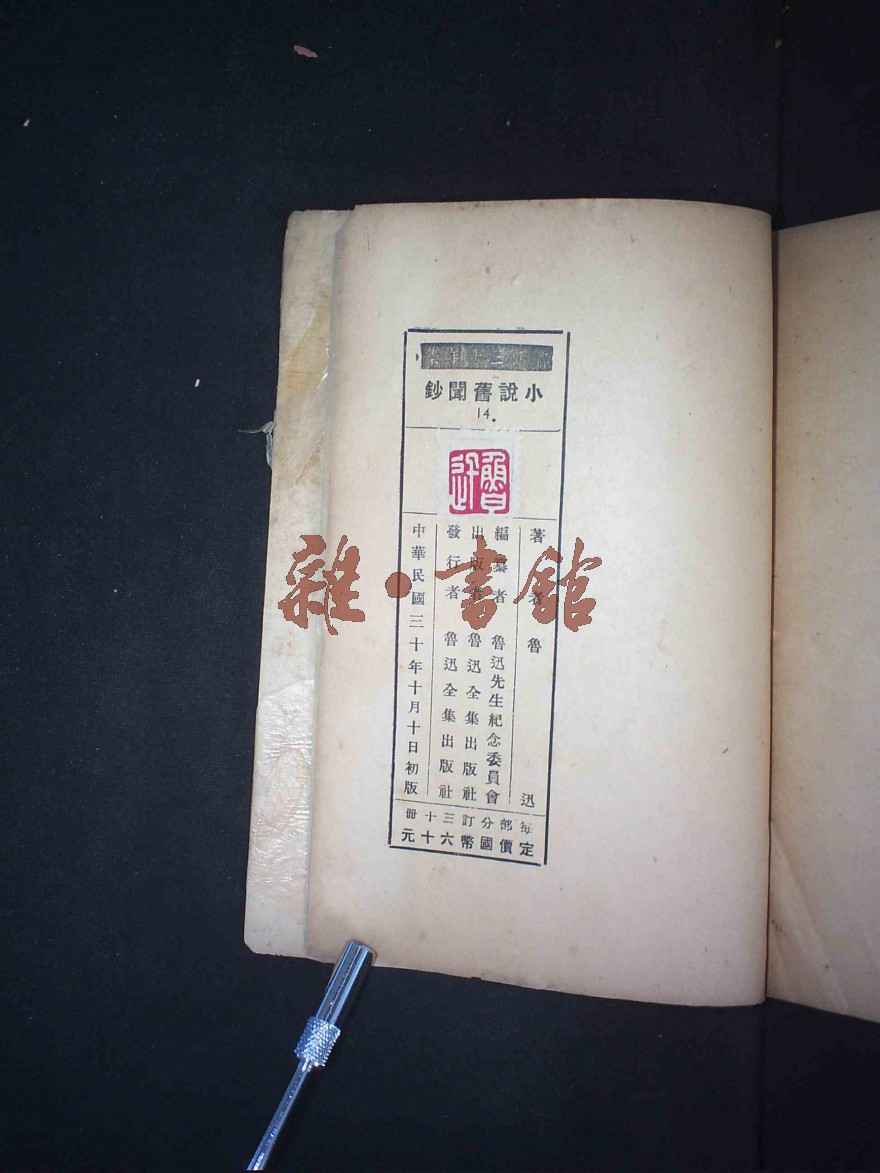 三十年集
小說舊聞鈔
14.
魯迅
著者 魯迅
編纂者 魯迅先生紀念委員會
出版者 魯迅全集出版社
發行者 魯迅全集出版社
中華民國三十年十月十日初版
每部分訂三十冊
定價國幣六十元
雜·書館